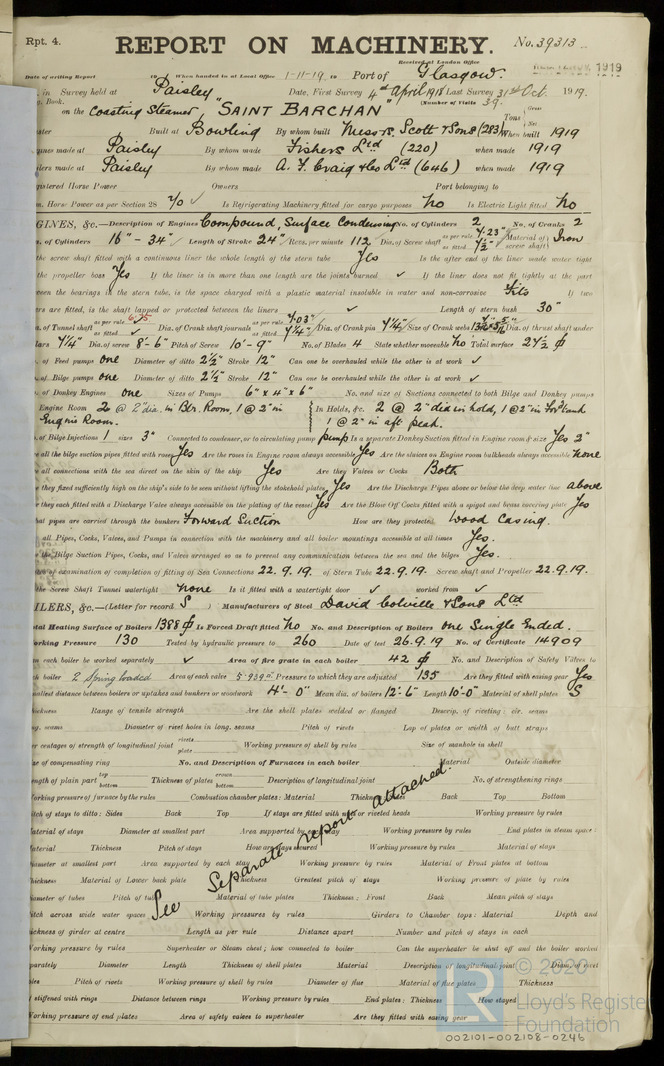 Rpt. 4.
REPORT ON MACHINERY.
No. 39313
Received at London Office
1919
Date of writing Report 19 When handed in at Local Office 1-11-19 to Port of Glasgow.
in Survey held at Paisley Date, First Survey 4th April 1918 Last Survey 31st Oct. 1919.
Book.
(Number of Visits 39.
on the Coasting Steamer, "SAINT BARCHAN"
Tons Gross
Net
Built at Bowling By whom built Messrs. Scott & Sons (283) When built 1919
made at Paisley By whom made Fishers Ltd (220) when made 1919
made at Paisley By whom made A. F. Craig & Co Ltd (646) when made 1919
Horse Power Owners Port belonging to
Horse Power as per Section 28 70 Is Refrigerating Machinery fitted for cargo purposes No Is Electric Light fitted No
GINES, &c.—Description of Engines Compound, Surface Condensing No. of Cylinders 2 No. of Cranks 2
of Cylinders 16" - 34" Length of Stroke 24" Revs. per minute 112 Dia. of Screw shaft as per rule 7.23" as fitted 7½" Material of screw shaft Iron
the screw shaft fitted with a continuous liner the whole length of the stern tube Yes Is the after end of the liner made water tight
the propeller boss Yes If the liner is in more than one length are the joints burned ✓ If the liner does not fit tightly at the part
the bearings in the stern tube, is the space charged with a plastic material insoluble in water and non-corrosive If two
are fitted, is the shaft lapped or protected between the liners ✓ Length of stern bush 30"
of Tunnel shaft as per rule 6.75 as fitted ✓ Dia. of Crank shaft journals as per rule 7.03" as fitted 7¼" Dia. of Crank pin 7¼" Size of Crank webs Dia. of thrust shaft under
7¼" Dia. of screw 8'-6" Pitch of Screw 10'-9" No. of Blades 4 State whether moveable No Total surface 27½ ϕ
of Feed pumps one Diameter of ditto 2½" Stroke 12" Can one be overhauled while the other is at work ✓
of Bilge pumps one Diameter of ditto 2½" Stroke 12" Can one be overhauled while the other is at work ✓
of Donkey Engines one Sizes of Pumps 6" x 4" x 6" No. and size of Suctions connected to both Bilge and Donkey pumps
Engine Room 2 @ 2" dia. in Blr. Room, 1 @ 2" in In Holds, &c. 2 @ 2" dia in hold, 1 @ 2" in For'd tank
Engine Room. 1 @ 2" in aft peak.
of Bilge Injections 1 sizes 3" Connected to condenser, or to circulating pump pump Is a separate Donkey Suction fitted in Engine room & size Yes 2"
all the bilge suction pipes fitted with roses Yes Are the roses in Engine room always accessible Yes Are the sluices on Engine room bulkheads always accessible none
all connections with the sea direct on the skin of the ship Yes Are they Valves or Cocks Both
they fixed sufficiently high on the ship's side to be seen without lifting the stokehold plates Yes Are the Discharge Pipes above or below the deep water line above
they each fitted with a Discharge Valve always accessible on the plating of the vessel Yes Are the Blow Off Cocks fitted with a spigot and brass covering plate Yes
pipes are carried through the bunkers Forward Suction How are they protected Wood Casing.
all Pipes, Cocks, Valves, and Pumps in connection with the machinery and all boiler mountings accessible at all times Yes.
the Bilge Suction Pipes, Cocks, and Valves arranged so as to prevent any communication between the sea and the bilges Yes.
of examination of completion of fitting of Sea Connections 22.9.19. of Stern Tube 22.9.19. Screw shaft and Propeller 22.9.19.
the Screw Shaft Tunnel watertight none Is it fitted with a watertight door ✓ worked from ✓
ILERS, &c.—(Letter for record S ) Manufacturers of Steel David Colville & Sons Ltd
Total Heating Surface of Boilers 1388 ϕ Is Forced Draft fitted No No. and Description of Boilers One Single Ended.
Working Pressure 130 Tested by hydraulic pressure to 260 Date of test 26.9.19 No. of Certificate 14909
each boiler be worked separately ✓ Area of fire grate in each boiler 42 ϕ No. and Description of Safety Valves to
boiler 2 Spring loaded Area of each valve 5.939" Pressure to which they are adjusted 135 Are they fitted with easing gear Yes
Smallest distance between boilers or uptakes and bunkers or woodwork 4'-0" Mean dia. of boilers 12'-6" Length 10'-0" Material of shell plates S
Thickness Range of tensile strength Are the shell plates welded or flanged Descrip. of riveting: cir. seams
seams Diameter of rivet holes in long. seams Pitch of rivets Lap of plates or width of butt straps
centages of strength of longitudinal joint rivets plate Working pressure of shell by rules Size of manhole in shell
of compensating ring No. and Description of Furnaces in each boiler Material Outside diameter
Length of plain part top bottom Thickness of plates crown bottom Description of longitudinal joint No. of strengthening rings
Working pressure of furnace by the rules Combustion chamber plates: Material Thickness Back Top Bottom
Pitch of stays to ditto: Sides Back Top If stays are fitted with nuts or riveted heads Working pressure by rules
Material of stays Diameter at smallest part Area supported by each stay Working pressure by rules End plates in steam space:
Material Thickness Pitch of stays How are stays secured Working pressure by rules Material of stays
Diameter at smallest part Area supported by each stay Working pressure by rules Material of Front plates at bottom
Thickness Material of Lower back plate Thickness Greatest pitch of stays Working pressure of plate by rules
Diameter of tubes Pitch of tubes Material of tube plates Thickness: Front Back Mean pitch of stays
See Separate report attached.
Pitch across wide water spaces Working pressures by rules Girders to Chamber tops: Material Depth and
thickness of girder at centre Length as per rule Distance apart Number and pitch of stays in each
Working pressure by rules Superheater or Steam chest; how connected to boiler Can the superheater be shut off and the boiler worked
separately Diameter Length Thickness of shell plates Material Description of longitudinal joint Diam. of rivet
holes Pitch of rivets Working pressure of shell by rules Diameter of flue Material of flue plates Thickness
If stiffened with rings Distance between rings Working pressure by rules End plates: Thickness How stayed
Working pressure of end plates Area of safety valves to superheater Are they fitted with easing gear
© 2020
Lloyd's Register
Foundation
002101-002108-0246